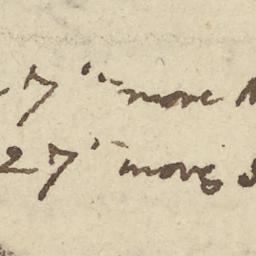 7" more
27" more